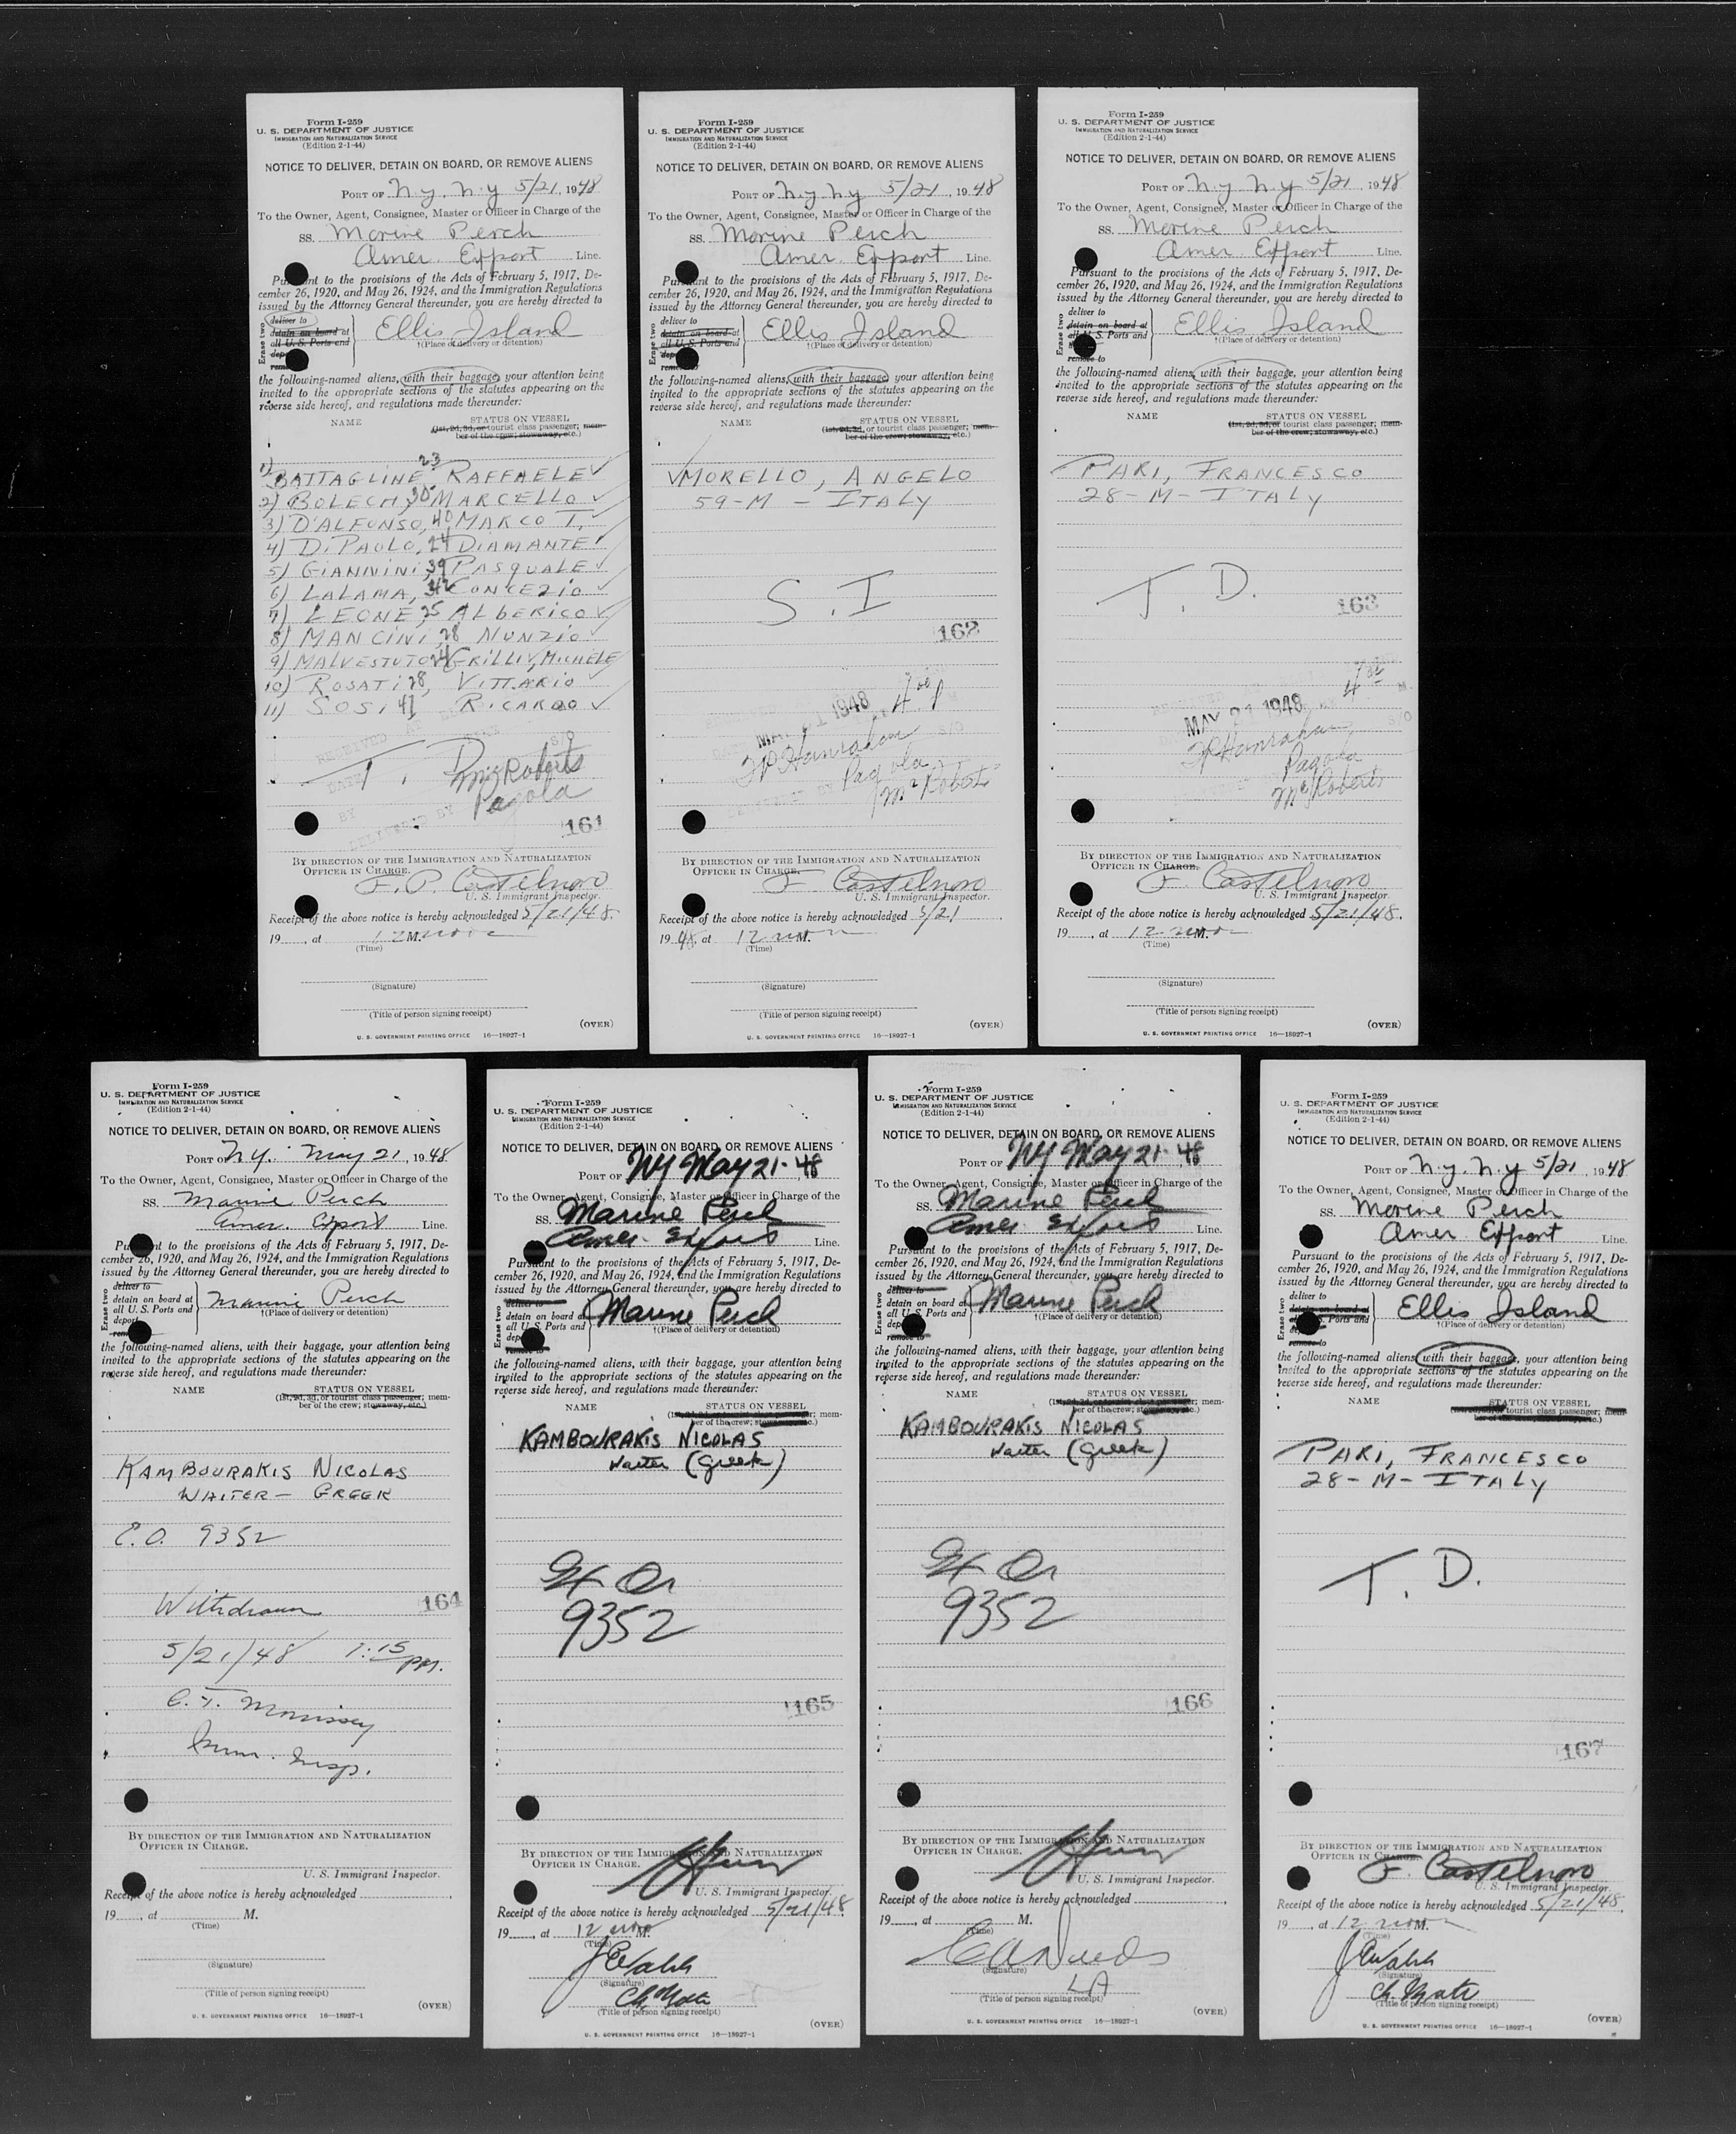 Form I-259
U. S. DEPARTMENT OF JUSTICE
IMMIGRATION AND NATURALIZATION SERVICE
(Edition 2-1-44)
NOTICE TO DELIVER, DETAIN ON BOARD, OR REMOVE ALIENS
PORT OF N.Y. N.Y 5/21, 1948
To the Owner, Agent, Consignee, Master or Officer in Charge of the
SS. Marine Perch
Amer. Export Line.
Pursuant to the provisions of the Acts of February 5, 1917, De-
cember 26, 1920, and May 26, 1924, and the Immigration Regulations
issued by the Attorney General thereunder, you are hereby directed to
Erase two
deliver to
detain on board at
all U. S. Ports and
remove to
Ellis Island
†(Place of delivery or detention)
the following-named aliens, with their baggage, your attention being
invited to the appropriate sections of the statutes appearing on the
reverse side hereof, and regulations made thereunder:
NAME STATUS ON VESSEL
(1st, 2d, 3d, or tourist class passenger; mem-
ber of the crew; stowaway, etc.)
1) BATTAGLINE 23 RAFFAELE ✓
2) BOLECH, 30 MARCELLO ✓
3) D'ALFONSO, 40 MARCO T. ✓
4) DiPAOLO, 24 DIAMANTE ✓
5) GIANNINI, 39 PASQUALE ✓
6) LALAMA, CONCEZIO ✓
7) LEONE, 25 ALBERICO ✓
8) MANCINI, 28 NUNZIO ✓
9) MALVESTUTO GRILLI, MICHELE
10) ROSATI 28, VITTARIO ✓
11) SOSI 41 RICARDO ✓
RECEIVED AT
DATE
T. D. McRoberts
Pagola
BY
DELIVERED BY
161
BY DIRECTION OF THE IMMIGRATION AND NATURALIZATION
OFFICER IN CHARGE.
F. P. Castelnovo
U. S. Immigrant Inspector.
Receipt of the above notice is hereby acknowledged 5/21/48.
19___, at 12 noon M.
(Time)
(Signature)
(Title of person signing receipt)
(OVER)
U. S. GOVERNMENT PRINTING OFFICE 16—18927-1
Form I-259
U. S. DEPARTMENT OF JUSTICE
IMMIGRATION AND NATURALIZATION SERVICE
(Edition 2-1-44)
NOTICE TO DELIVER, DETAIN ON BOARD, OR REMOVE ALIENS
PORT OF N.Y. N.Y 5/21, 1948
To the Owner, Agent, Consignee, Master or Officer in Charge of the
SS. Marine Perch
Amer. Export Line.
Pursuant to the provisions of the Acts of February 5, 1917, De-
cember 26, 1920, and May 26, 1924, and the Immigration Regulations
issued by the Attorney General thereunder, you are hereby directed to
Erase two
deliver to
detain on board at
all U. S. Ports and
Ellis Island
†(Place of delivery or detention)
the following-named aliens, with their baggage, your attention being
invited to the appropriate sections of the statutes appearing on the
reverse side hereof, and regulations made thereunder:
NAME STATUS ON VESSEL
(1st, 2d, 3d, or tourist class passenger; mem-
ber of the crew; stowaway, etc.)
✓MORELLO, ANGELO
59-M - ITALY
S. I
162
MAY 21 1948
Hanrahan
Pagola
McRoberts
BY DIRECTION OF THE IMMIGRATION AND NATURALIZATION
OFFICER IN CHARGE.
F. Castelnovo
U. S. Immigrant Inspector.
Receipt of the above notice is hereby acknowledged 5/21
1948, at 12 noon M.
(Time)
(Signature)
(Title of person signing receipt)
(OVER)
U. S. GOVERNMENT PRINTING OFFICE 16—18927-1
Form I-259
U. S. DEPARTMENT OF JUSTICE
IMMIGRATION AND NATURALIZATION SERVICE
(Edition 2-1-44)
NOTICE TO DELIVER, DETAIN ON BOARD, OR REMOVE ALIENS
PORT OF N.Y N.Y 5/21 1948
To the Owner, Agent, Consignee, Master or Officer in Charge of the
SS. Marine Perch
Amer. Export Line.
Pursuant to the provisions of the Acts of February 5, 1917, De-
cember 26, 1920, and May 26, 1924, and the Immigration Regulations
issued by the Attorney General thereunder, you are hereby directed to
Erase two
deliver to
detain on board at
all U. S. Ports and
remove to
Ellis Island
†(Place of delivery or detention)
the following-named aliens, with their baggage, your attention being
invited to the appropriate sections of the statutes appearing on the
reverse side hereof, and regulations made thereunder:
NAME STATUS ON VESSEL
(1st, 2d, 3d, or tourist class passenger; mem-
ber of the crew; stowaway, etc.)
PARI, FRANCESCO
28-M-ITALY
T. D.
163
MAY 21 1948
Hanrahan
Pagola
McRoberts
BY DIRECTION OF THE IMMIGRATION AND NATURALIZATION
OFFICER IN CHARGE.
F. Castelnovo
U. S. Immigrant Inspector.
Receipt of the above notice is hereby acknowledged 5/21/48.
19___, at 12 noon M.
(Time)
(Signature)
(Title of person signing receipt)
(OVER)
U. S. GOVERNMENT PRINTING OFFICE 16—18927-1
Form I-259
U. S. DEPARTMENT OF JUSTICE
IMMIGRATION AND NATURALIZATION SERVICE
(Edition 2-1-44)
NOTICE TO DELIVER, DETAIN ON BOARD, OR REMOVE ALIENS
PORT OF N.Y. May 21, 1948
To the Owner, Agent, Consignee, Master or Officer in Charge of the
SS. Marine Perch
Amer. Export Line.
Pursuant to the provisions of the Acts of February 5, 1917, De-
cember 26, 1920, and May 26, 1924, and the Immigration Regulations
issued by the Attorney General thereunder, you are hereby directed to
Erase two
deliver to
detain on board at
all U. S. Ports and
deport
remove to
Marine Perch
†(Place of delivery or detention)
the following-named aliens, with their baggage, your attention being
invited to the appropriate sections of the statutes appearing on the
reverse side hereof, and regulations made thereunder:
NAME STATUS ON VESSEL
(1st, 2d, 3d, or tourist class passenger; mem-
ber of the crew; stowaway, etc.)
KAMBOURAKIS NICOLAS
WAITER - GREEK
E.O. 9352
Withdrawn 164
5/21/48 1:15 PM.
C. T. Morrissey
Imm. Insp.
BY DIRECTION OF THE IMMIGRATION AND NATURALIZATION
OFFICER IN CHARGE.
U. S. Immigrant Inspector.
Receipt of the above notice is hereby acknowledged
19___, at M.
(Time)
(Signature)
(Title of person signing receipt)
(OVER)
U. S. GOVERNMENT PRINTING OFFICE 16—18927-1
Form I-259
U. S. DEPARTMENT OF JUSTICE
IMMIGRATION AND NATURALIZATION SERVICE
(Edition 2-1-44)
NOTICE TO DELIVER, DETAIN ON BOARD, OR REMOVE ALIENS
PORT OF NY May 21 - 48
To the Owner, Agent, Consignee, Master or Officer in Charge of the
SS. Marine Perch
Amer. Export Line.
Pursuant to the provisions of the Acts of February 5, 1917, De-
cember 26, 1920, and May 26, 1924, and the Immigration Regulations
issued by the Attorney General thereunder, you are hereby directed to
Erase two
deliver to
detain on board at
all U. S. Ports and
remove to
Marine Perch
†(Place of delivery or detention)
the following-named aliens, with their baggage, your attention being
invited to the appropriate sections of the statutes appearing on the
reverse side hereof, and regulations made thereunder:
NAME STATUS ON VESSEL
(1st, 2d, 3d, or tourist class passenger; mem-
ber of the crew; stowaway, etc.)
KAMBOURAKIS NICOLAS
Waiter (Greek)
Ex Or
9352
165
BY DIRECTION OF THE IMMIGRATION AND NATURALIZATION
OFFICER IN CHARGE.
U. S. Immigrant Inspector.
Receipt of the above notice is hereby acknowledged 5/21/48.
19___, at 12 noon M.
(Time)
J Walsh
(Signature)
Ch. Mate
(Title of person signing receipt)
(OVER)
U. S. GOVERNMENT PRINTING OFFICE 16—18927-1
Form I-259
U. S. DEPARTMENT OF JUSTICE
IMMIGRATION AND NATURALIZATION SERVICE
(Edition 2-1-44)
NOTICE TO DELIVER, DETAIN ON BOARD, OR REMOVE ALIENS
PORT OF NY May 21 - 48
To the Owner, Agent, Consignee, Master or Officer in Charge of the
SS. Marine Perch
Amer. Export Line.
Pursuant to the provisions of the Acts of February 5, 1917, De-
cember 26, 1920, and May 26, 1924, and the Immigration Regulations
issued by the Attorney General thereunder, you are hereby directed to
Erase two
deliver to
detain on board at
all U. S. Ports and
remove to
Marine Perch
†(Place of delivery or detention)
the following-named aliens, with their baggage, your attention being
invited to the appropriate sections of the statutes appearing on the
reverse side hereof, and regulations made thereunder:
NAME STATUS ON VESSEL
(1st, 2d, 3d, or tourist class passenger; mem-
ber of the crew; stowaway, etc.)
KAMBOURAKIS NICOLAS
Waiter (Greek)
Ex Or
9352
166
BY DIRECTION OF THE IMMIGRATION AND NATURALIZATION
OFFICER IN CHARGE.
U. S. Immigrant Inspector.
Receipt of the above notice is hereby acknowledged
19___, at M.
(Time)
(Signature)
(Title of person signing receipt)
(OVER)
U. S. GOVERNMENT PRINTING OFFICE 16—18927-1
Form I-259
U. S. DEPARTMENT OF JUSTICE
IMMIGRATION AND NATURALIZATION SERVICE
(Edition 2-1-44)
NOTICE TO DELIVER, DETAIN ON BOARD, OR REMOVE ALIENS
PORT OF N.Y. N.Y 5/21 1948
To the Owner, Agent, Consignee, Master or Officer in Charge of the
SS. Marine Perch
Amer. Export Line.
Pursuant to the provisions of the Acts of February 5, 1917, De-
cember 26, 1920, and May 26, 1924, and the Immigration Regulations
issued by the Attorney General thereunder, you are hereby directed to
Erase two
deliver to
detain on board at
all U. S. Ports and
remove to
Ellis Island
†(Place of delivery or detention)
the following-named aliens, with their baggage, your attention being
invited to the appropriate sections of the statutes appearing on the
reverse side hereof, and regulations made thereunder:
NAME STATUS ON VESSEL
tourist class passenger; mem-
PARI, FRANCESCO
28-M-ITALY
T. D.
167
BY DIRECTION OF THE IMMIGRATION AND NATURALIZATION
OFFICER IN CHARGE.
F. Castelnovo
U. S. Immigrant Inspector.
Receipt of the above notice is hereby acknowledged 5/21/48
19___, at 12 noon M.
(Time)
J Walsh
(Signature)
Ch. Mate
(Title of person signing receipt)
(OVER)
U. S. GOVERNMENT PRINTING OFFICE 16—18927-1